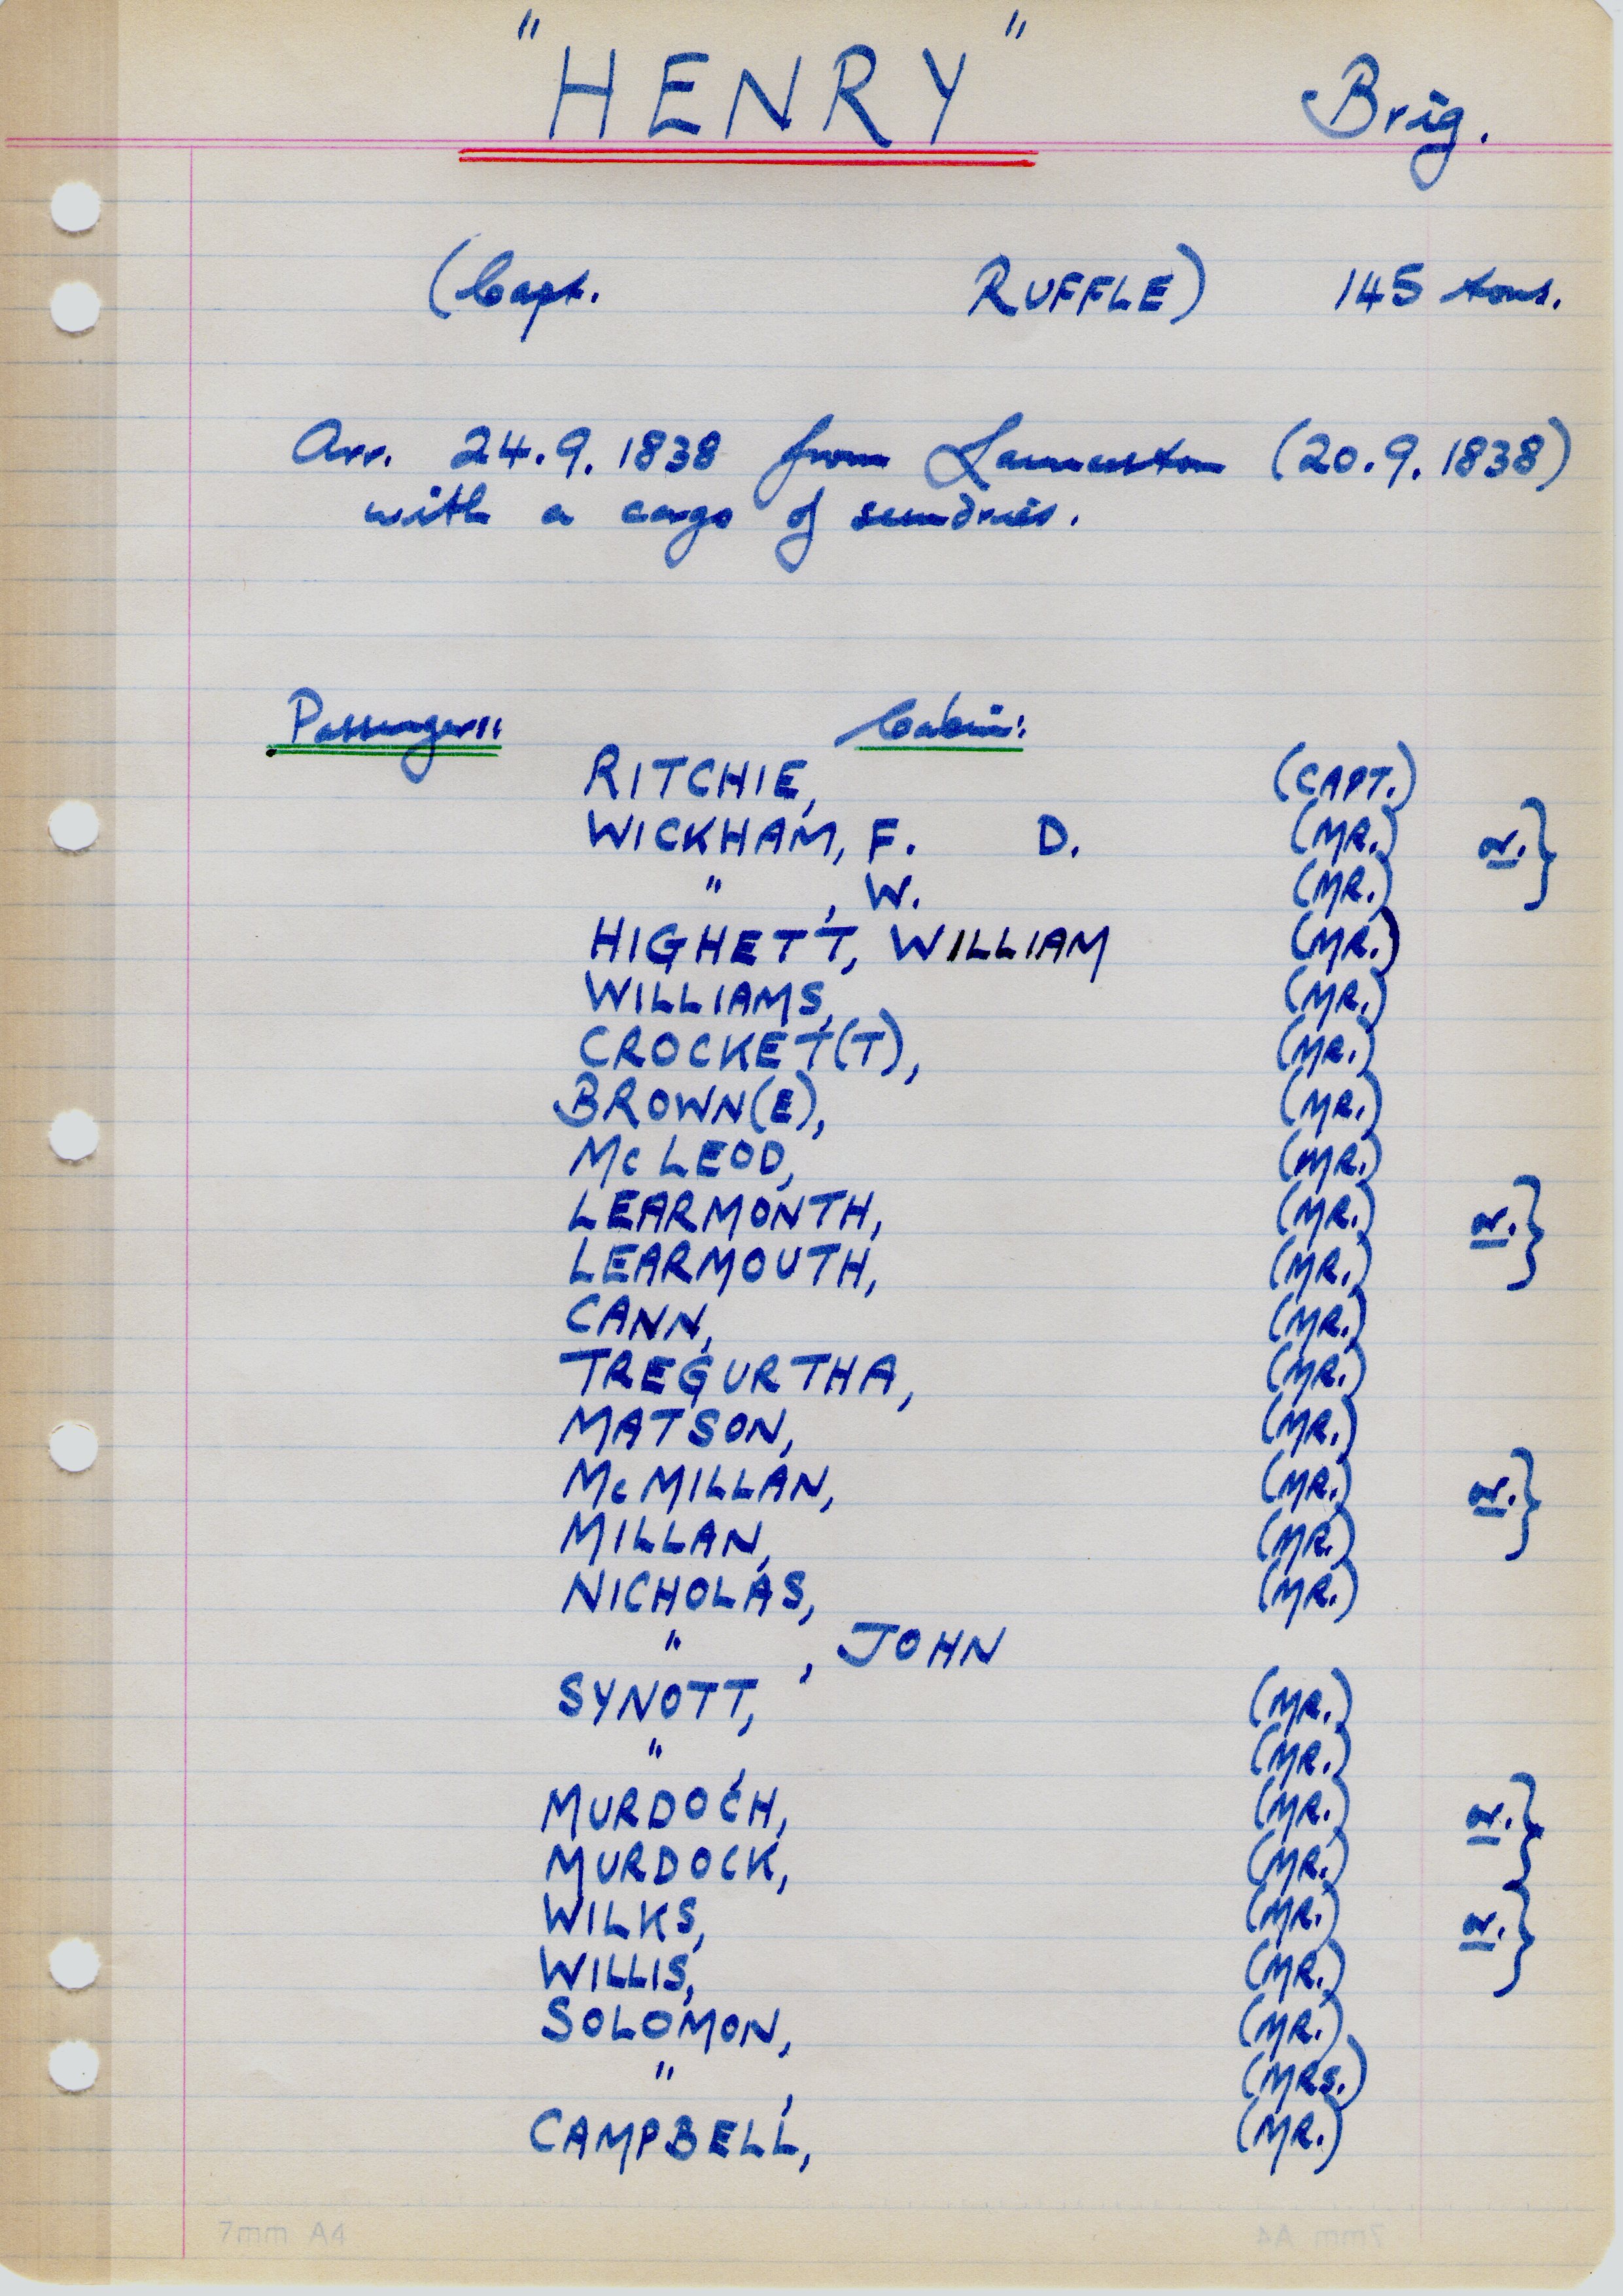 "HENRY" Brig.
(Capt. RUFFLE) 145 tons.
Arr. 24.9.1838 from Launceston (20.9.1838)
with a cargo of sundries.
Passengers: Cabin:
RITCHIE, (CAPT.)
WICKHAM, F. D. (MR.) or. }
" , W. (MR.)
HIGHETT, WILLIAM (MR.)
WILLIAMS, (MR.)
CROCKET(T), (MR.)
BROWN(E), (MR.)
McLEOD, (MR.)
LEARMONTH, (MR.) or. }
LEARMOUTH, (MR.)
CANN, (MR.)
TREGURTHA, (MR.)
MATSON, (MR.)
McMILLAN, (MR.) or. }
MILLAN, (MR.)
NICHOLAS, (MR.)
" , JOHN
SYNOTT, (MR.)
" , (MR.)
MURDOCH, (MR.) or. }
MURDOCK, (MR.)
WILKS, (MR.) or. }
WILLIS, (MR.)
SOLOMON, (MR.)
" , (MRS.)
CAMPBELL, (MR.)
7mm A4 7mm A4